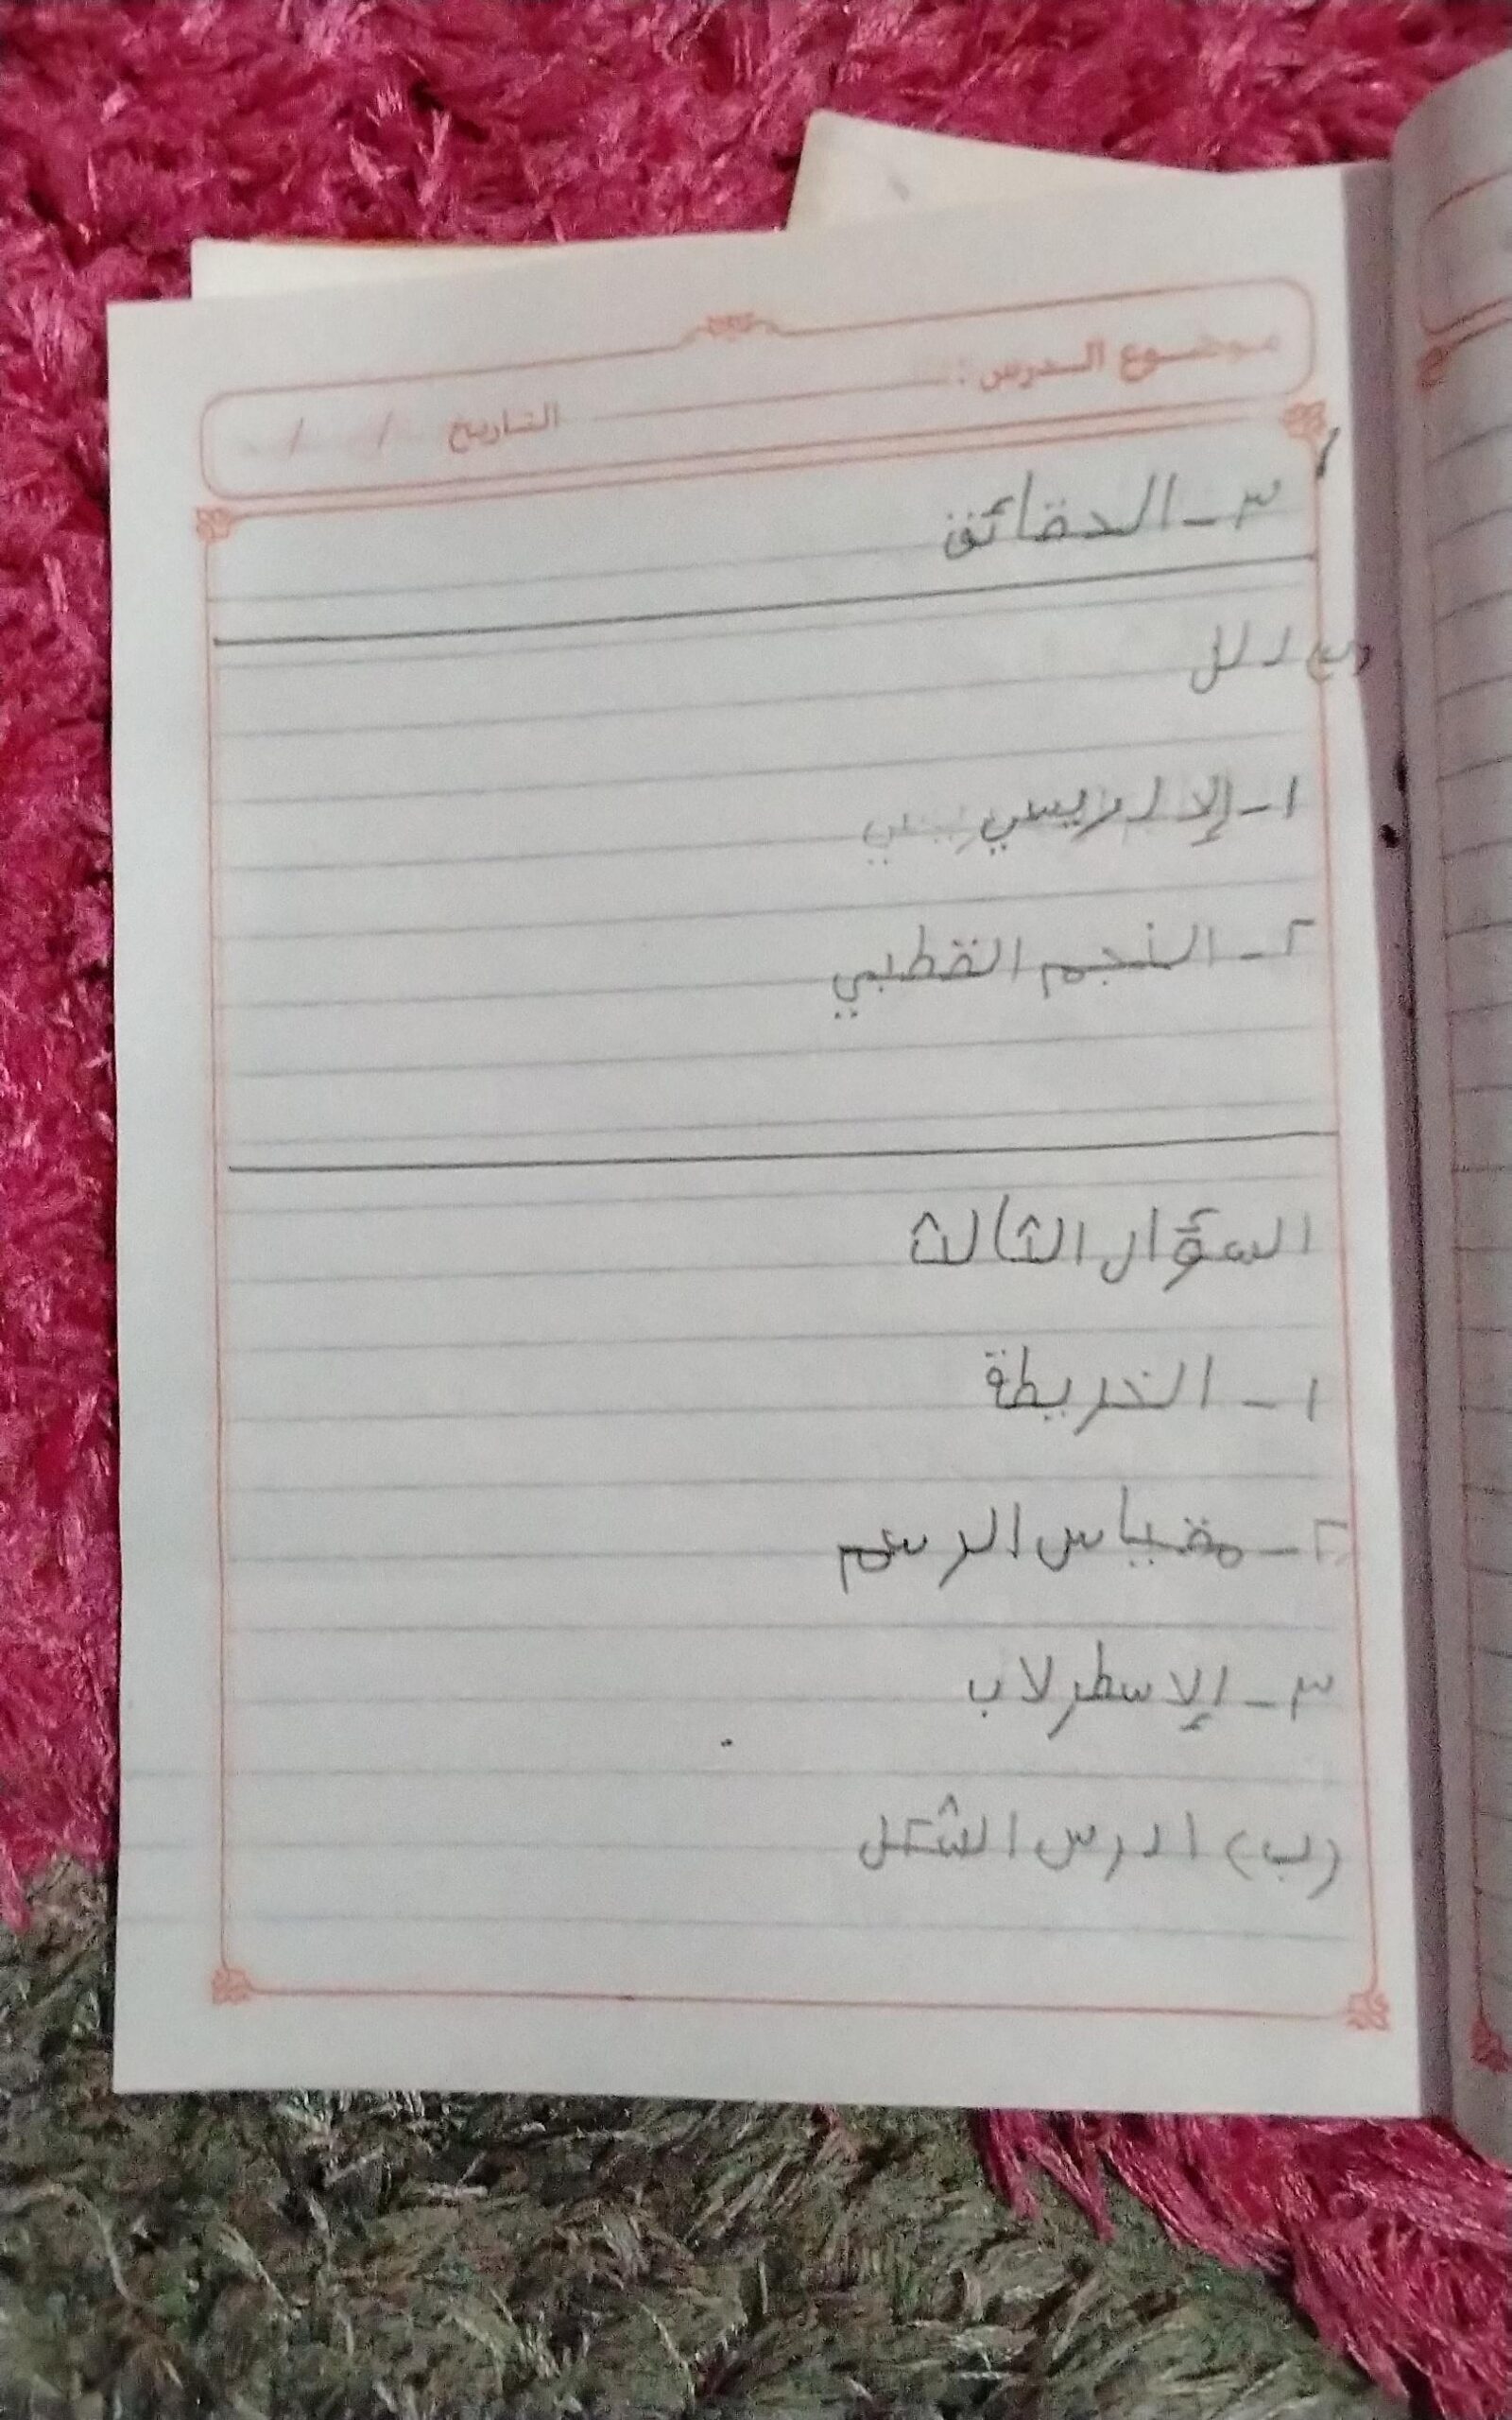 موضوع الدرس :
التاريخ / /
٣ - الحقائق
(ب) دلل
١ - الإدريسي
٢ - النجم القطبي
السؤال الثالث
١ - الخريطة
٢ - مقياس الرسم
٣ - الإسطرلاب
(ب) ادرس الشكل